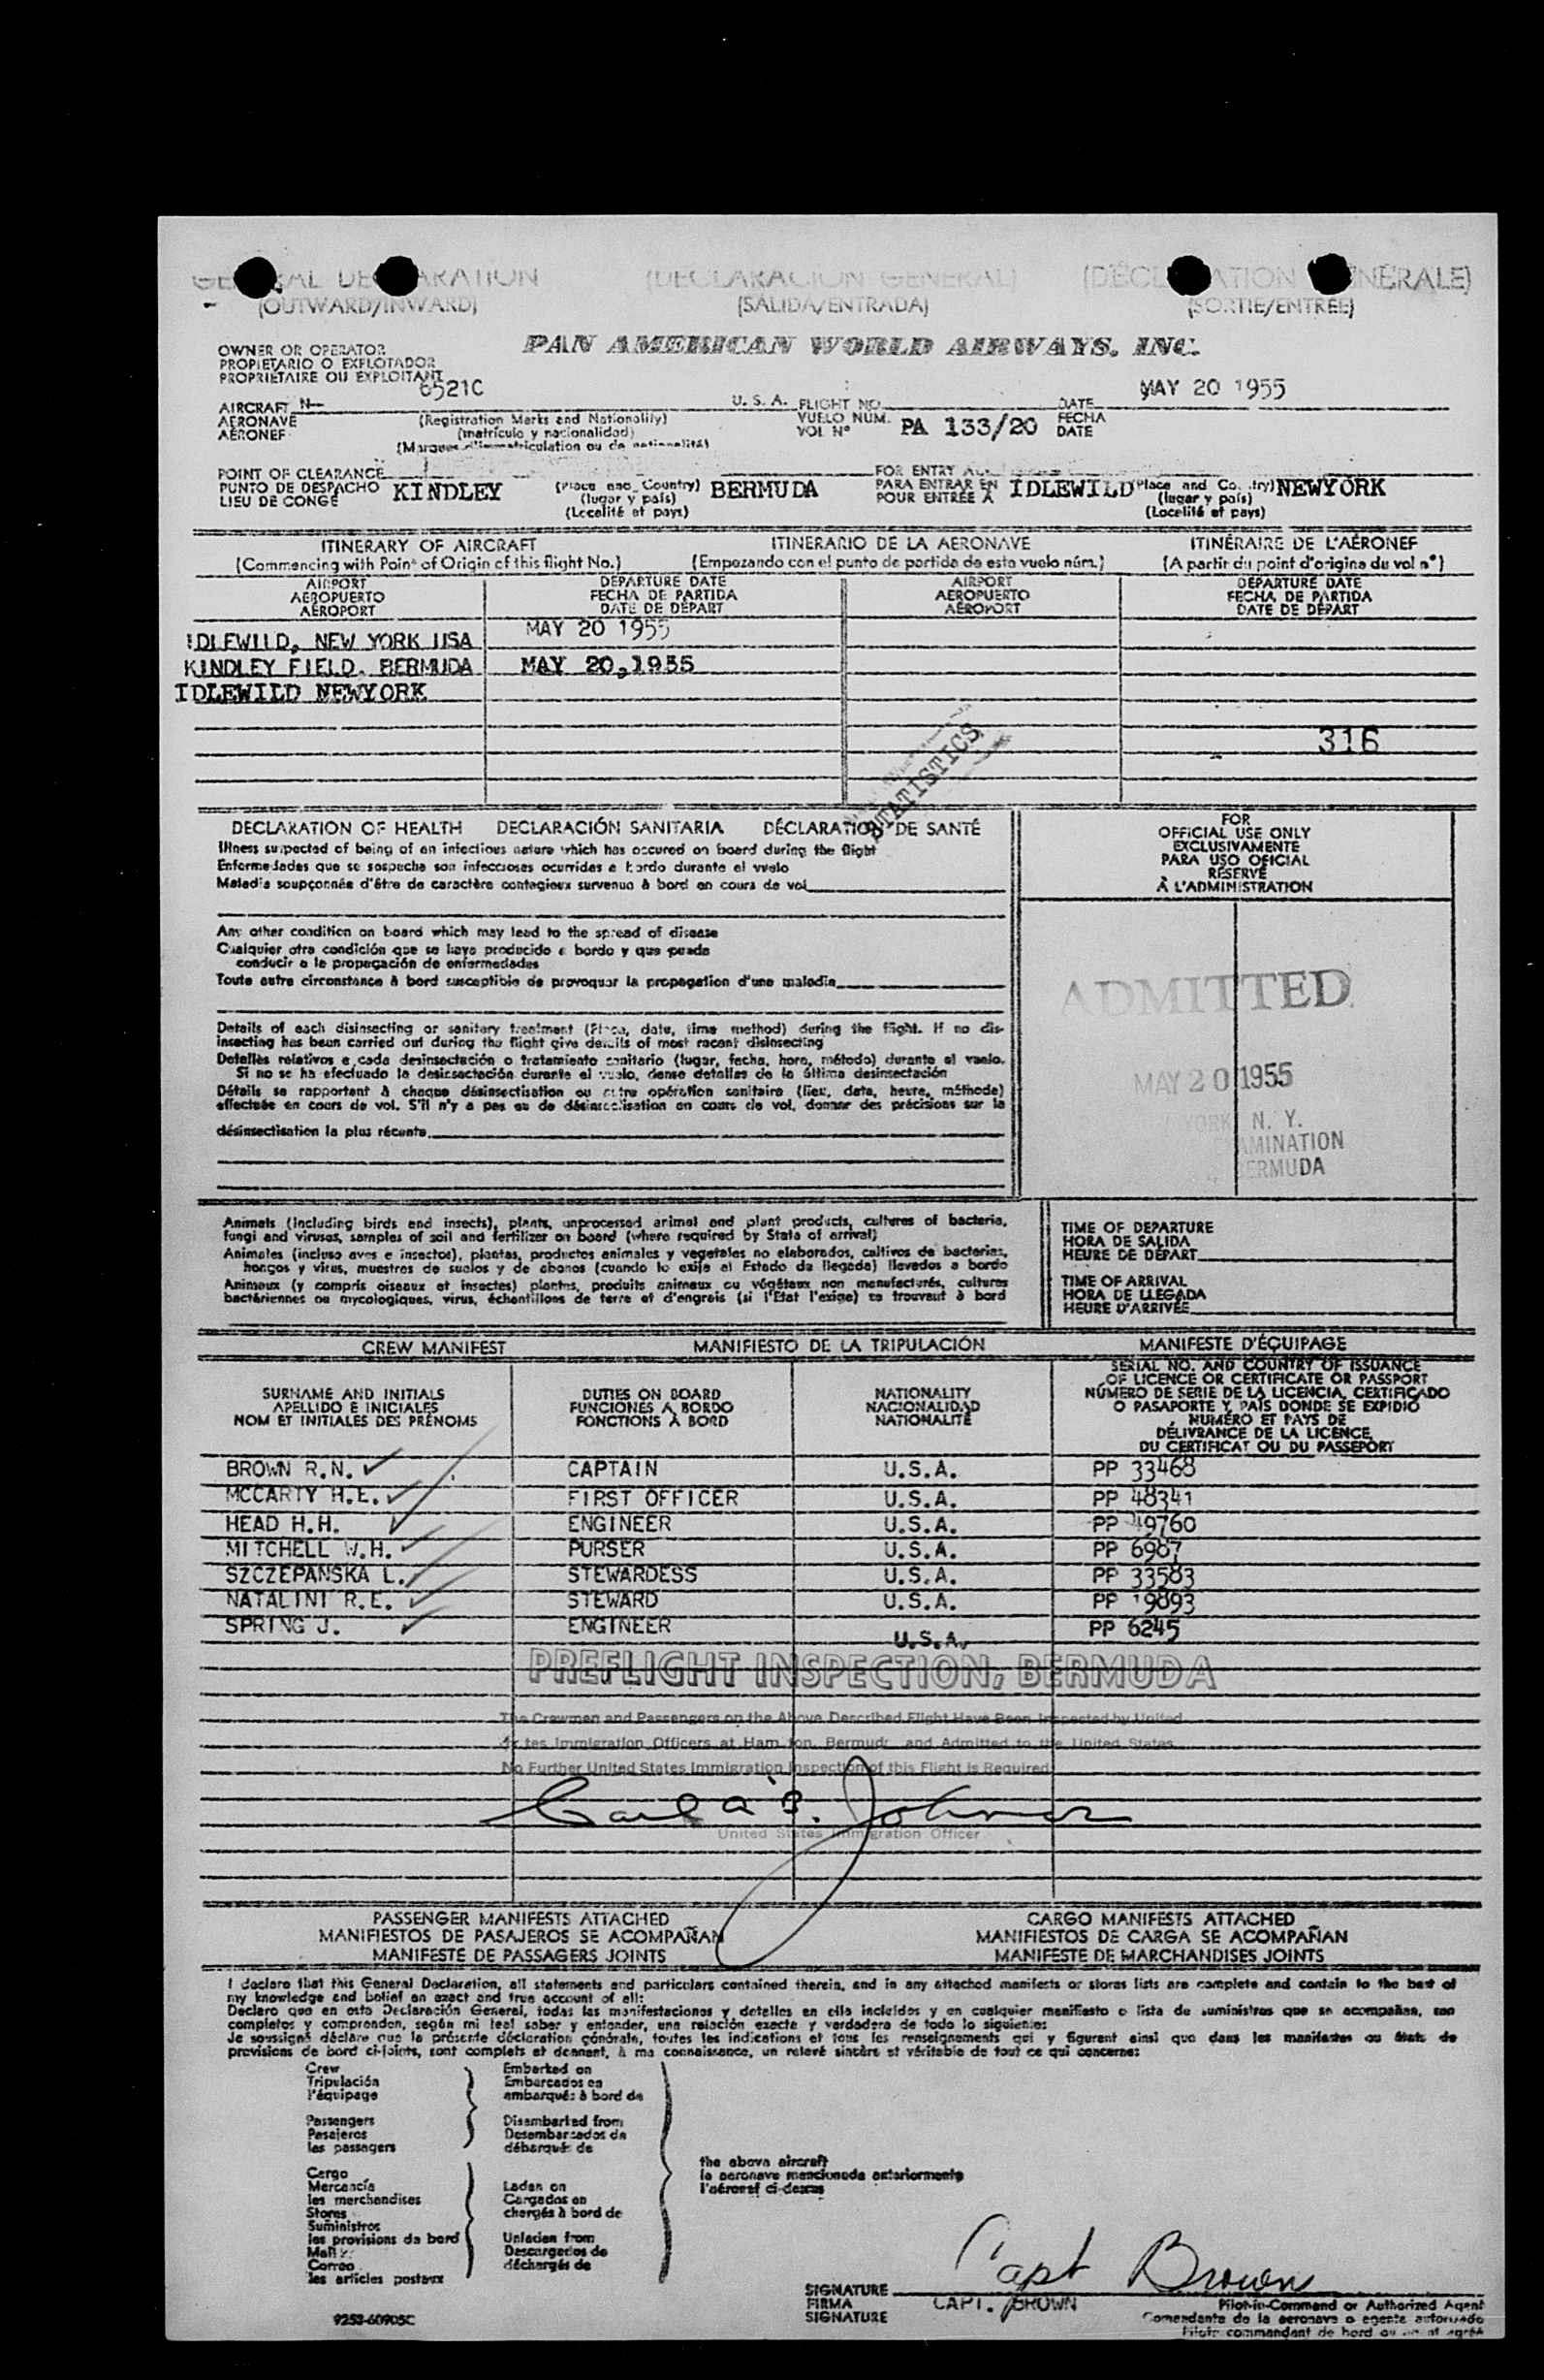 GENERAL DECLARATION (DECLARACION GENERAL) (DÉCLARATION GÉNÉRALE)
(OUTWARD/INWARD) (SALIDA/ENTRADA) (SORTIE/ENTRÉE)
OWNER OR OPERATOR
PROPIETARIO O EXPLOTADOR
PROPRIÉTAIRE OU EXPLOITANT
PAN AMERICAN WORLD AIRWAYS, INC.
AIRCRAFT N- 6521C U. S. A. FLIGHT NO. DATE MAY 20 1955
AERONAVE (Registration Marks and Nationality) VUELO NUM. PA 133/20 FECHA
AÉRONEF (matrícula y nacionalidad) VOL Nº DATE
(Marques d'immatriculation ou de nationalité)
POINT OF CLEARANCE FOR ENTRY AT
PUNTO DE DESPACHO KINDLEY (Place and Country) BERMUDA PARA ENTRAR EN IDLEWILD (Place and Country) NEWYORK
LIEU DE CONGÉ (lugar y país) POUR ENTRÉE À (lugar y país)
(Localité et pays) (Localité et pays)
ITINERARY OF AIRCRAFT ITINERARIO DE LA AERONAVE ITINÉRAIRE DE L'AÉRONEF
(Commencing with Point of Origin of this flight No.) (Empezando con el punto de partida de este vuelo núm.) (A partir du point d'origine du vol nº)
AIRPORT DEPARTURE DATE AIRPORT DEPARTURE DATE
AEROPUERTO FECHA DE PARTIDA AEROPUERTO FECHA DE PARTIDA
AÉROPORT DATE DE DÉPART AÉROPORT DATE DE DÉPART
IDLEWILD, NEW YORK USA MAY 20 1955
KINDLEY FIELD, BERMUDA MAY 20,1955
IDLEWILD NEWYORK
316
STATISTICS
DECLARATION OF HEALTH DECLARACIÓN SANITARIA DÉCLARATION DE SANTÉ
Illness suspected of being of an infectious nature which has occured on board during the flight
Enfermedades que se sospecha son infecciosas ocurridas a bordo durante el vuelo
Maladie soupçonnée d'être de caractère contagieux survenue à bord en cours de vol
Any other condition on board which may lead to the spread of disease
Cualquier otra condición que se haya producido a bordo y que pueda
conducir a la propagación de enfermedades
Toute autre circonstance à bord susceptible de provoquer la propagation d'une maladie
Details of each disinsecting or sanitary treatment (Place, date, time method) during the flight. If no dis-
insecting has been carried out during the flight give details of most recent disinsecting
Detalles relativos a cada desinsectación o tratamiento sanitario (lugar, fecha, hora, método) durante el vuelo.
Si no se ha efectuado la desinsectación durante el vuelo, dense detalles de la última desinsectación
Détails se rapportant à chaque désinsectisation ou autre opération sanitaire (lieu, date, heure, méthode)
effectuée en cours de vol. S'il n'y a pas eu de désinsectisation en cours de vol, donner des précisions sur la
désinsectisation la plus récente
FOR
OFFICIAL USE ONLY
EXCLUSIVAMENTE
PARA USO OFICIAL
RÉSERVÉ
À L'ADMINISTRATION
ADMITTED
MAY 20 1955
YORK N. Y.
EXAMINATION
BERMUDA
Animals (including birds and insects), plants, unprocessed animal and plant products, cultures of bacteria,
fungi and viruses, samples of soil and fertilizer on board (where required by State of arrival)
Animales (incluso aves e insectos), plantas, productos animales y vegetales no elaborados, cultivos de bacterias,
hongos y virus, muestras de suelos y de abonos (cuando lo exija el Estado de llegada) llevados a bordo
Animaux (y compris oiseaux et insectes) plantes, produits animaux ou végétaux non manufacturés, cultures
bactériennes ou mycologiques, virus, échantillons de terre et d'engrais (si l'Etat l'exige) se trouvant à bord
TIME OF DEPARTURE
HORA DE SALIDA
HEURE DE DÉPART
TIME OF ARRIVAL
HORA DE LLEGADA
HEURE D'ARRIVÉE
CREW MANIFEST MANIFIESTO DE LA TRIPULACIÓN MANIFESTE D'ÉQUIPAGE
SURNAME AND INITIALS
APELLIDO E INICIALES
NOM ET INITIALES DES PRÉNOMS
DUTIES ON BOARD
FUNCIONES A BORDO
FONCTIONS À BORD
NATIONALITY
NACIONALIDAD
NATIONALITÉ
SERIAL NO. AND COUNTRY OF ISSUANCE
OF LICENCE OR CERTIFICATE OR PASSPORT
NÚMERO DE SERIE DE LA LICENCIA, CERTIFICADO
O PASAPORTE Y PAÍS DONDE SE EXPIDIÓ
NUMÉRO ET PAYS DE
DÉLIVRANCE DE LA LICENCE,
DU CERTIFICAT OU DU PASSEPORT
BROWN R.N. CAPTAIN U.S.A. PP 33468
MCCARTY H.E. FIRST OFFICER U.S.A. PP 48341
HEAD H.H. ENGINEER U.S.A. PP 19760
MITCHELL W.H. PURSER U.S.A. PP 6987
SZCZEPANSKA L. STEWARDESS U.S.A. PP 33583
NATALINI R.E. STEWARD U.S.A. PP 19893
SPRING J. ENGINEER U.S.A. PP 6245
PREFLIGHT INSPECTION, BERMUDA
The Crewmen and Passengers on the Above Described Flight Have Been Inspected by United
States Immigration Officers at Hamilton, Bermuda and Admitted to the United States
No Further United States Immigration Inspection of this Flight is Required
Johnson
United States Immigration Officer
PASSENGER MANIFESTS ATTACHED CARGO MANIFESTS ATTACHED
MANIFIESTOS DE PASAJEROS SE ACOMPAÑAN MANIFIESTOS DE CARGA SE ACOMPAÑAN
MANIFESTE DE PASSAGERS JOINTS MANIFESTE DE MARCHANDISES JOINTS
I declare that this General Declaration, all statements and particulars contained therein, and in any attached manifests or stores lists are complete and contain to the best of
my knowledge and belief an exact and true account of all:
Declaro que en esta Declaración General, todas las manifestaciones y detalles en ella incluidos y en cualquier manifiesto o lista de suministros que se acompañan, son
completos y comprenden, según mi leal saber y entender, una relación exacta y verdadera de todo lo siguiente:
Je soussigné déclare que la présente déclaration générale, toutes les indications et tous les renseignements qui y figurent ainsi que dans les manifestes ou états de
provisions de bord ci-joints, sont complets et donnent, à ma connaissance, un relevé sincère et véritable de tout ce qui concerne:
Crew
Tripulación
l'équipage
Passengers
Pasajeros
les passagers
Cargo
Mercancía
les marchandises
Stores
Suministros
les provisions de bord
Mail
Correo
les articles postaux
Embarked on
Embarcados en
embarqués à bord de
Disembarked from
Desembarcados de
débarqués de
Laden on
Cargados en
chargés à bord de
Unladen from
Descargados de
déchargés de
the above aircraft
la aeronave mencionada anteriormente
l'aéronef ci-dessus
Capt Brown
SIGNATURE
FIRMA CAPT. BROWN
SIGNATURE
Pilot-in-Command or Authorized Agent
Comandante de la aeronave o agente autorizado
Pilote commandant de bord ou agent agréé
9253-60905C